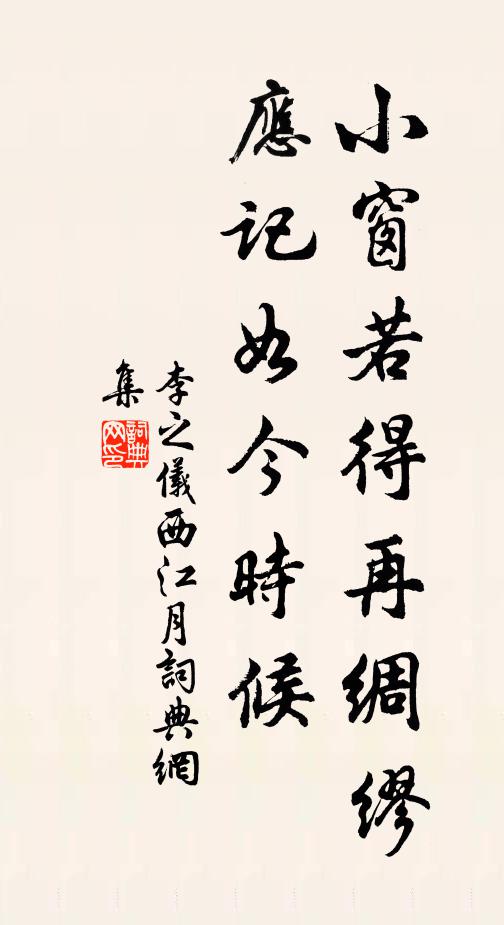 小窗若得再綢繆
應記如今時候
李之儀西江月詞典網
集
詞典
网印